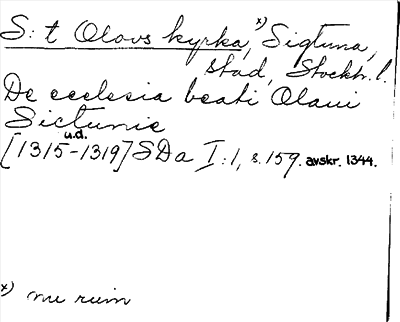 S:t Olovs kyrka,ˣ⁾ Sigtuna,
stad, Stockh. l.
De ecclesia beati Olaui
Sictunie
u.d.
[1315-1319] SDa I:1, s. 159. avskr. 1344.
x) nu ruin